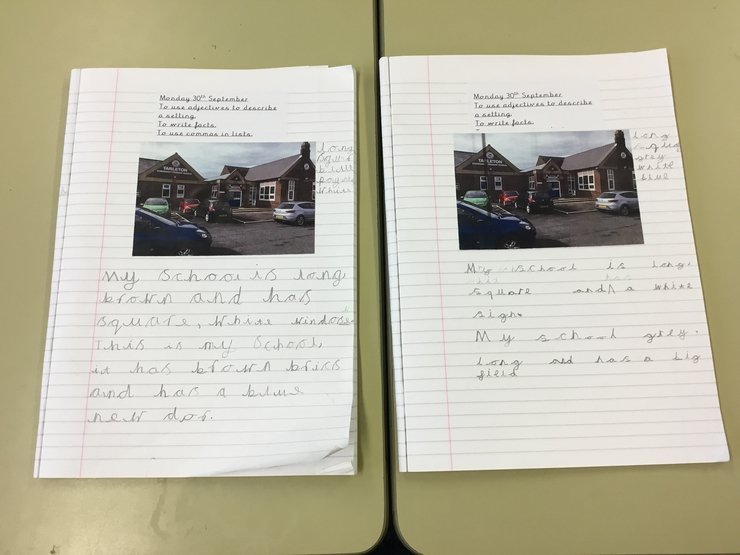 Monday 30th September
To use adjectives to describe
a setting.
To write facts.
To use commas in lists.
TARLETON
long
blue
My School is long,
brown and has
square, white windose.
This is my School,
it has brown brics
and has a blue
new dor.
Monday 30th September
To use adjectives to describe
a setting.
To write facts.
TARLETON
long
grey
white
blue
My school is long,
has
square and a white
sign.
My school grey,
long and has a big
field